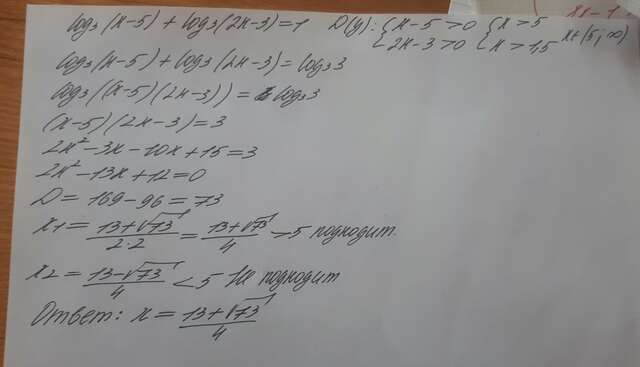 log₃(x-5) + log₃(2x-3) = 1 D(y): { x-5>0 { x>5
2x-3>0 x>1,5 x∈(5; ∞)
log₃(x-5) + log₃(2x-3) = log₃3
log₃((x-5)(2x-3)) = log₃3
(x-5)(2x-3) = 3
2x² - 3x - 10x + 15 = 3
2x² - 13x + 12 = 0
D = 169 - 96 = 73
x₁ = (13+√73)/(2·2) = (13+√73)/4 > 5 подходит.
x₂ = (13-√73)/4 < 5 Не подходит
Ответ: x = (13+√73)/4